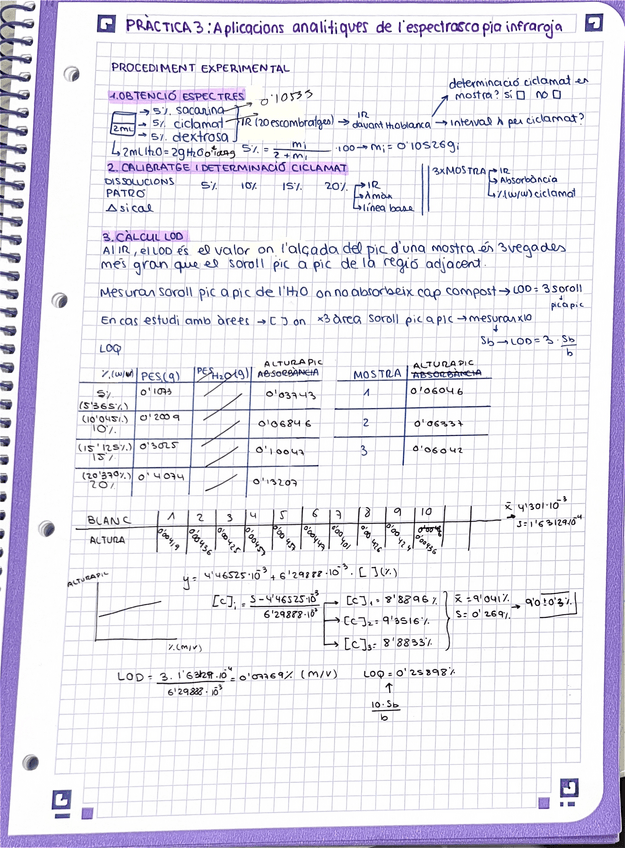 PRÀCTICA 3: Aplicacions analítiques de l'espectroscopia infraroja
PROCEDIMENT EXPERIMENTAL
determinació ciclamat en
mostra? SI □ NO □
1. OBTENCIÓ ESPECTRES
0'10533
2mL
→ 5% sacarina
→ 5% ciclamat
→ 5% dextrosa
IR (20 escombratges) → IR davant H2O blanca → interval λ per ciclamat?
2mL H2O = 2g H2O
5% = mi / 2 + mi · 100 → mi = 0'10526gi
2. CALIBRATGE I DETERMINACIÓ CICLAMAT
DISSOLUCIONS PATRÓ 5% 10% 15% 20%
→ IR
→ λmax
→ línea base
Δsical
3XMOSTRA → IR
→ Absorbància
→ %(w/w) ciclamat
3. CÀLCUL LOD
Al IR, el LOD és el valor on l'alçada del pic d'una mostra és 3 vegades
més gran que el soroll pic a pic de la regió adjacent.
Mesuran soroll pic a pic de l'H2O on no absorbeix cap compost → LOD = 3 soroll
pic a pic
En cas estudi amb àrees → [ ] on x3 àrea soroll pic a pic → mesuran x10
Sb → LOD = 3 · Sb / b
LOQ
%(w/w) PES(g) PES H2O (g) ALTURA PIC ABSORBÀNCIA
5% (5'365%) 0'1073 0'03743
(10'045%) 10% 0'2009 0'06846
(15'125%) 15% 0'3025 0'10047
(20'370%) 20% 0'4074 0'13207
MOSTRA ALTURA PIC ABSORBÀNCIA
1 0'06046
2 0'06337
3 0'06042
BLANC 1 2 3 4 5 6 7 8 9 10
ALTURA 0'00419 0'00436 0'00425
x̄ 4'301·10⁻³
s = 1'63129·10⁻⁴
ALTURA PIC
%(m/v)
y = 4'46525·10⁻³ + 6'29888·10⁻³ · [ ](%)
[C]i = S - 4'46525·10⁻³ / 6'29888·10⁻³
→ [C]1 = 8'8896%
→ [C]2 = 9'3516%
→ [C]3 = 8'8833%
x̄ = 9'041%
S = 0'269%
→ 9'0±0'3%
LOD = 3 · 1'63129·10⁻⁴ / 6'29888·10⁻³ = 0'07769% (m/v)
LOQ = 0'25898%
10·Sb / b